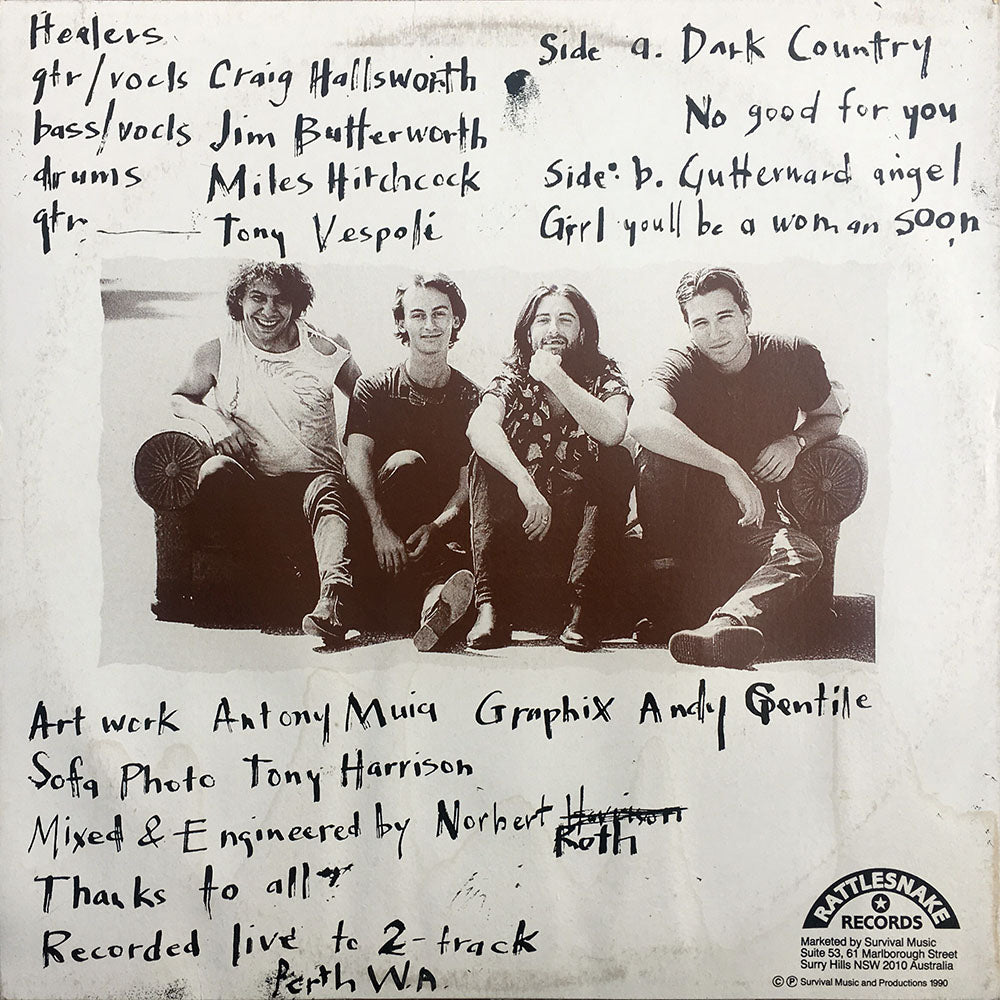 Healers.
gtr/vocls Craig Hallsworth
bass/vocls Jim Butterworth
drums Miles Hitchcock
gtr Tony Vespoli
Side a. Dark Country
No good for you
Side: b. Gutterward angel
Girl youll be a woman soon
Art work Antony Muia Graphix Andy Gentile
Sofa Photo Tony Harrison
Mixed & Engineered by Norbert Harrison
Roth
Thanks to all
Recorded live to 2-track
Perth W.A.
RATTLESNAKE
RECORDS
Marketed by Survival Music
Suite 53, 61 Marlborough Street
Surry Hills NSW 2010 Australia
© ℗ Survival Music and Productions 1990